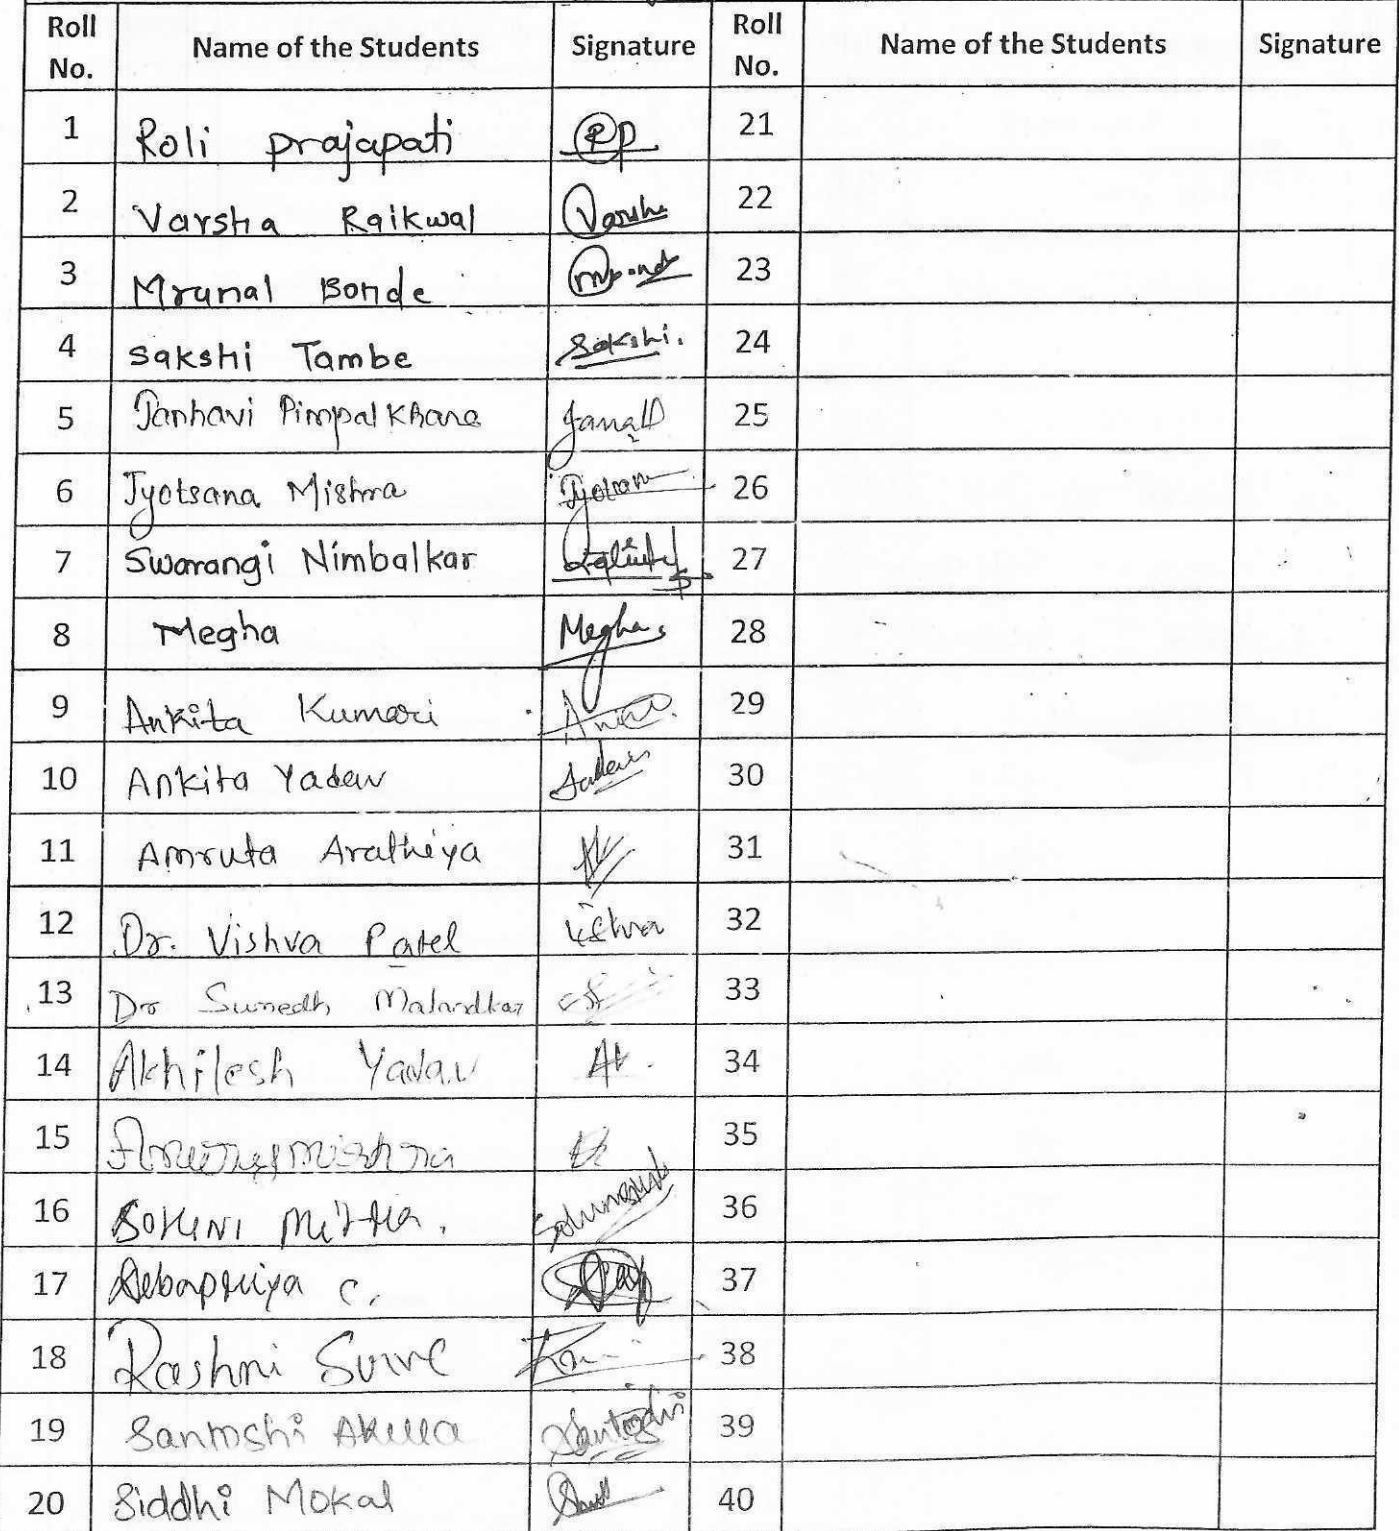 Roll No. Name of the Students Signature Roll No. Name of the Students Signature
1 Roli prajapati RP 21
2 Varsha Raikwal Varsha 22
3 Mrunal Bonde 23
4 sakshi Tambe Sakshi. 24
5 Janhavi Pimpalkhare 25
6 Jyotsana Mishra 26
7 Swarangi Nimbalkar 27
8 Megha Megha 28
9 Ankita Kumari 29
10 Ankita Yadav 30
11 Amruta Aratheya 31
12 Dr. Vishva Patel Vishva 32
13 Dr Sumedh 33
14 Akhilesh Yadav 34
15 mishra 35
16 SOHINI MITRA. 36
17 Debapriya C. 37
18 Rashmi Surve 38
19 Santoshi Akella Santoshi 39
20 Siddhi Mokal 40